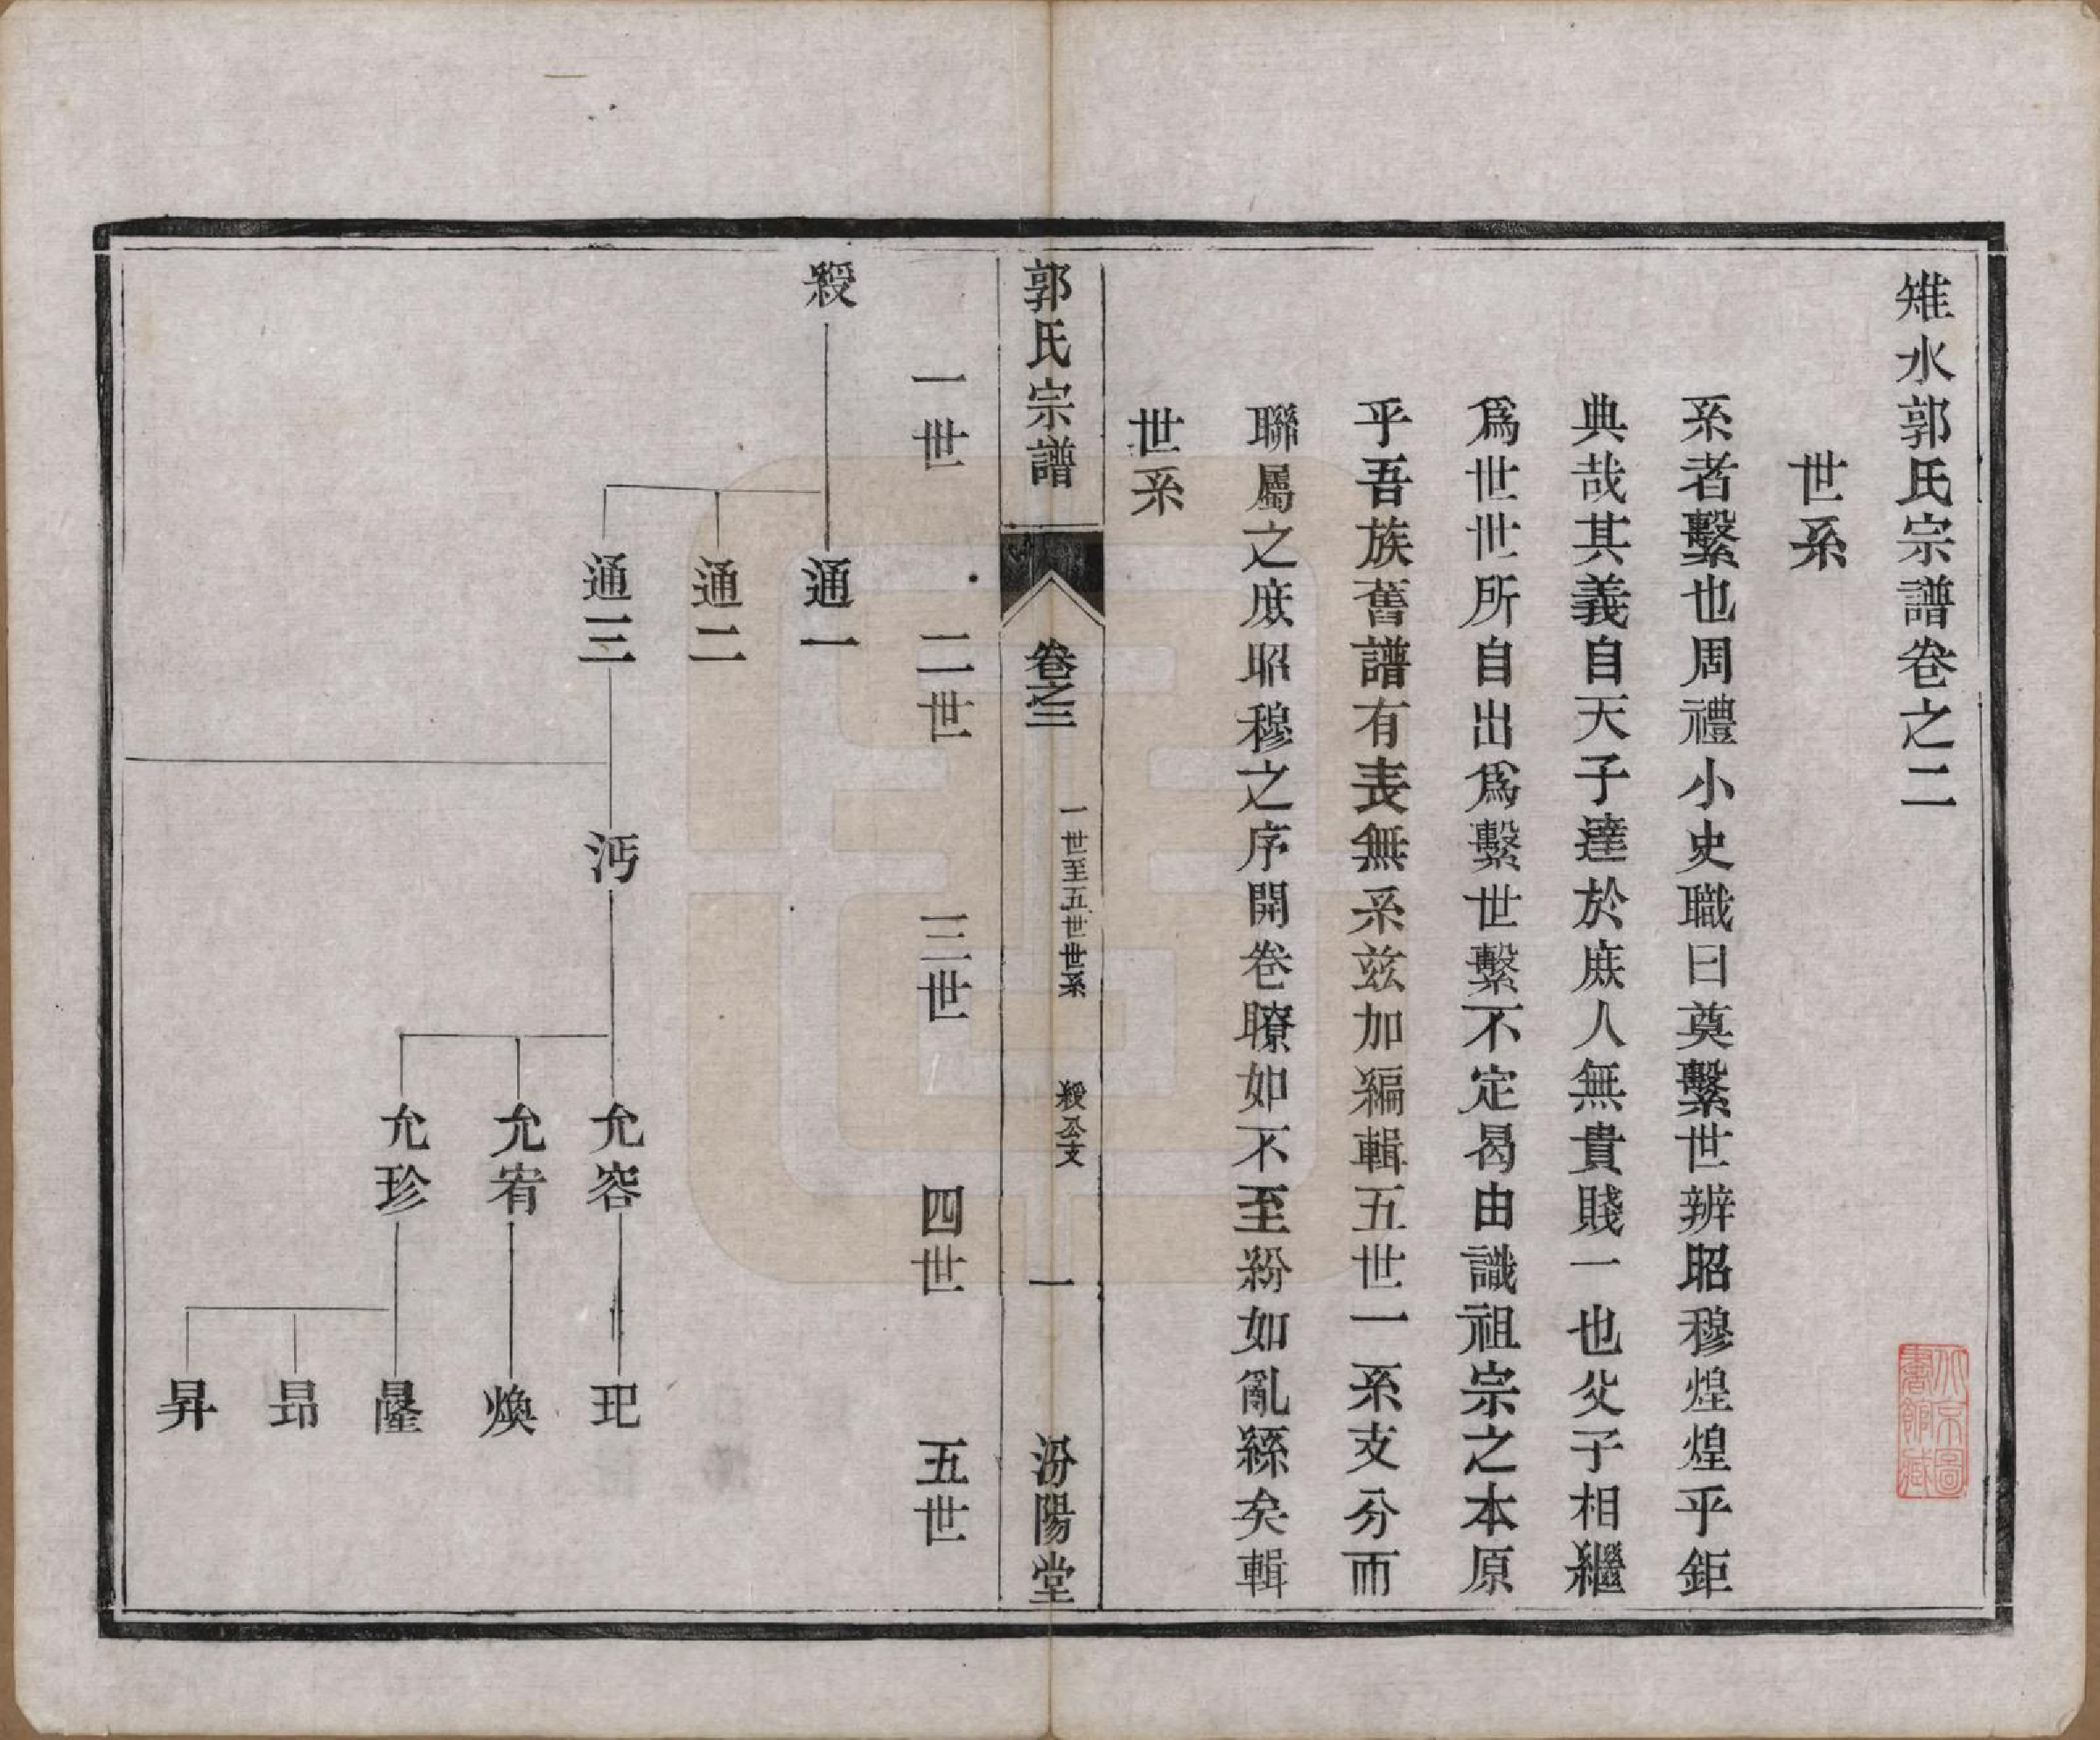 雉水郭氏宗譜卷之二
世系
系者繫也周禮小史職曰奠繫世辨昭穆煌煌乎鉅
典哉其義自天子達於庶人無貴賤一也父子相繼
爲世世所自出爲繫世繫不定曷由識祖宗之本原
乎吾族舊譜有表無系兹加編輯五世一系支分而
聯屬之庶昭穆之序開卷瞭如不至紛如亂絲矣輯
世系
郭氏宗譜
卷之二
一世至五世世系
綬公支
一
汾陽堂
一世
二世
三世
四世
五世
綬
通一
通二
通三
沔
允容
允宥
允珍
玘
煥
昂
昇